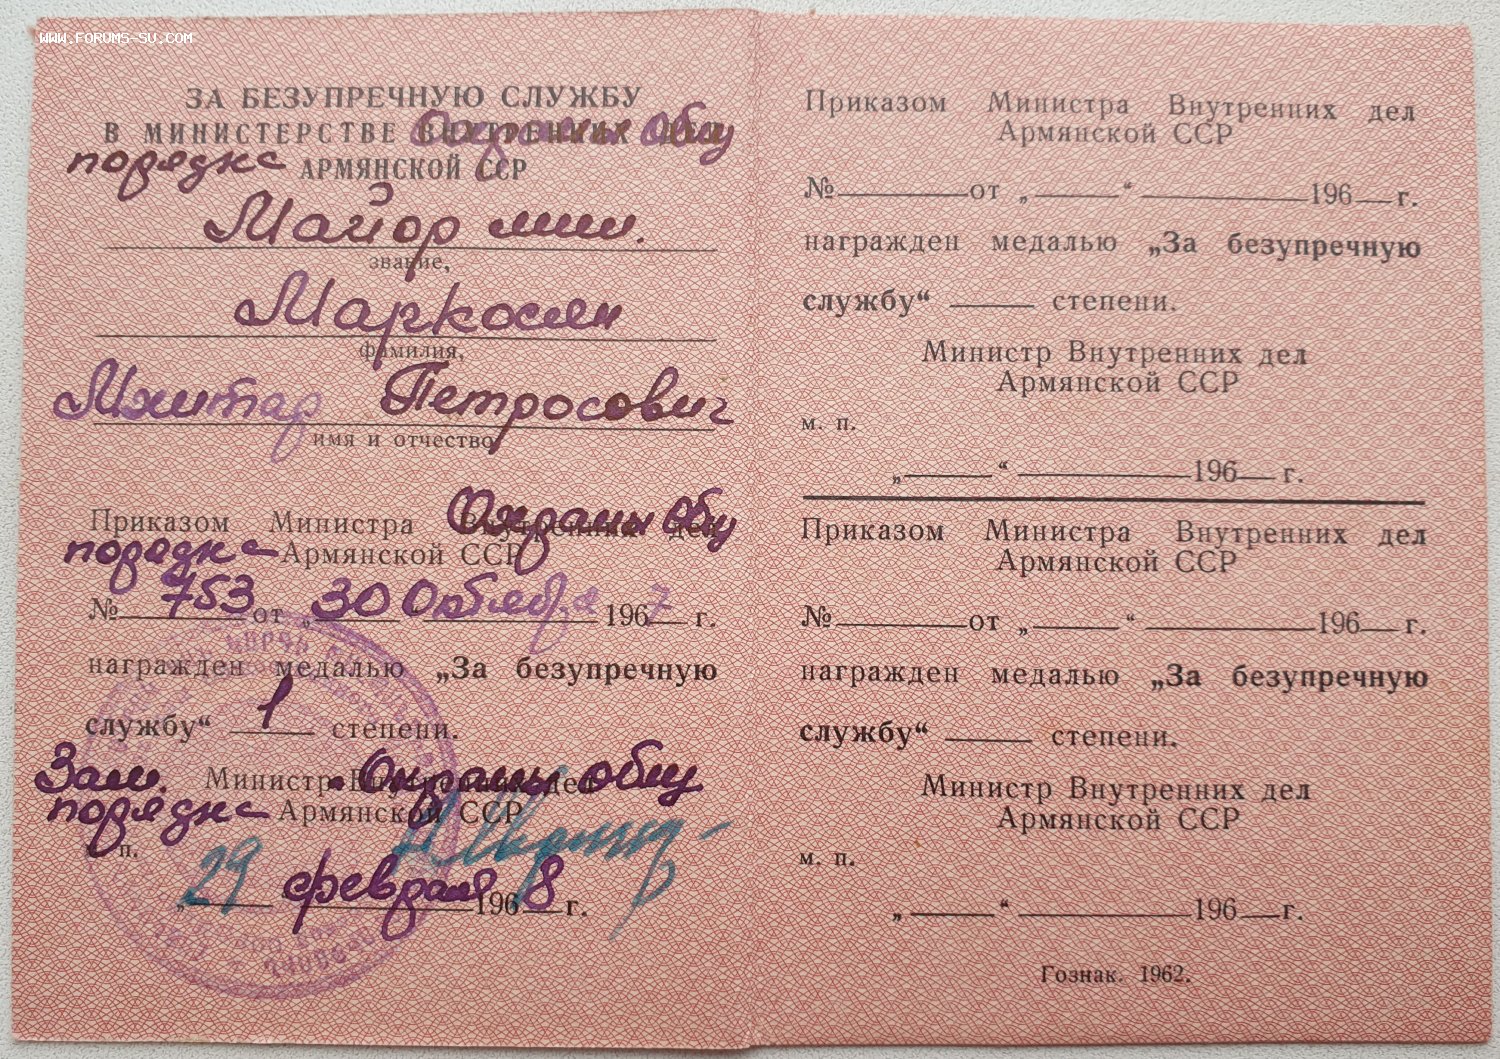 WWW.FORUMS-SU.COM
ЗА БЕЗУПРЕЧНУЮ СЛУЖБУ
В МИНИСТЕРСТВЕ ВНУТРЕННИХ ДЕЛ Охраны общ
порядка АРМЯНСКОЙ ССР
Майор мил.
звание,
Маркосян
фамилия,
Мхитар Петросович
имя и отчество
Приказом Министра Внутренних дел Охраны общ
порядка Армянской ССР
№ 753 от „30“ Октября 1967 г.
награжден медалью „За безупречную
службу“ 1 степени.
Зам. Министр Внутренних дел Охраны общ
порядка Армянской ССР
м. п.
„29“ февраля 1968 г.
Приказом Министра Внутренних дел
Армянской ССР
№ от „ “ 196 г.
награжден медалью „За безупречную
службу“ степени.
Министр Внутренних дел
Армянской ССР
м. п.
„ “ 196 г.
Приказом Министра Внутренних дел
Армянской ССР
№ от „ “ 196 г.
награжден медалью „За безупречную
службу“ степени.
Министр Внутренних дел
Армянской ССР
м. п.
„ “ 196 г.
Гознак. 1962.